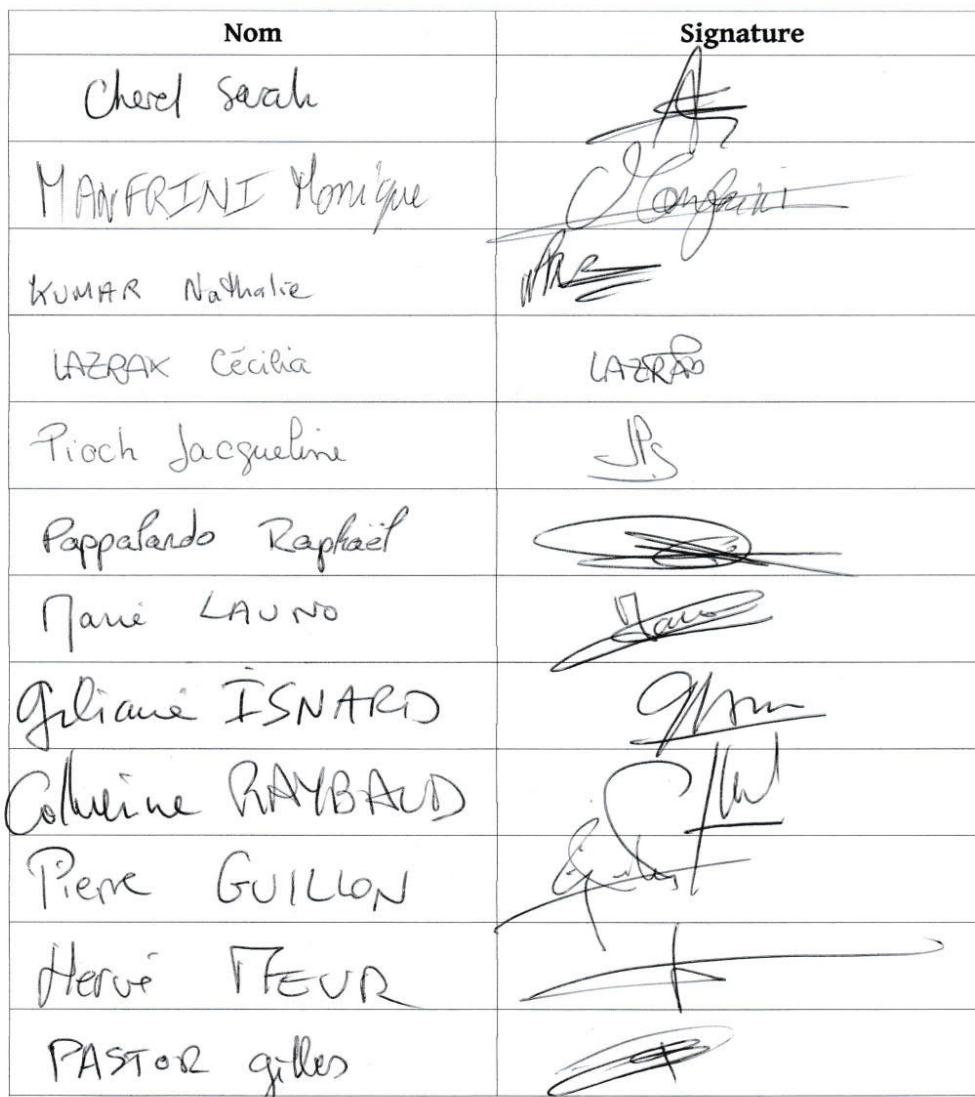 Nom Signature
Cherel Sarah
MANFRINI Monique Manfrini
KUMAR Nathalie
LAZRAK Cécilia LAZRAK
Pioch Jacqueline JPS
Pappalardo Raphaël
Marie LAUNO
Giliane ISNARD
Catherine RAYBAUD
Pierre GUILLON
Hervé MEUR
PASTOR gilles